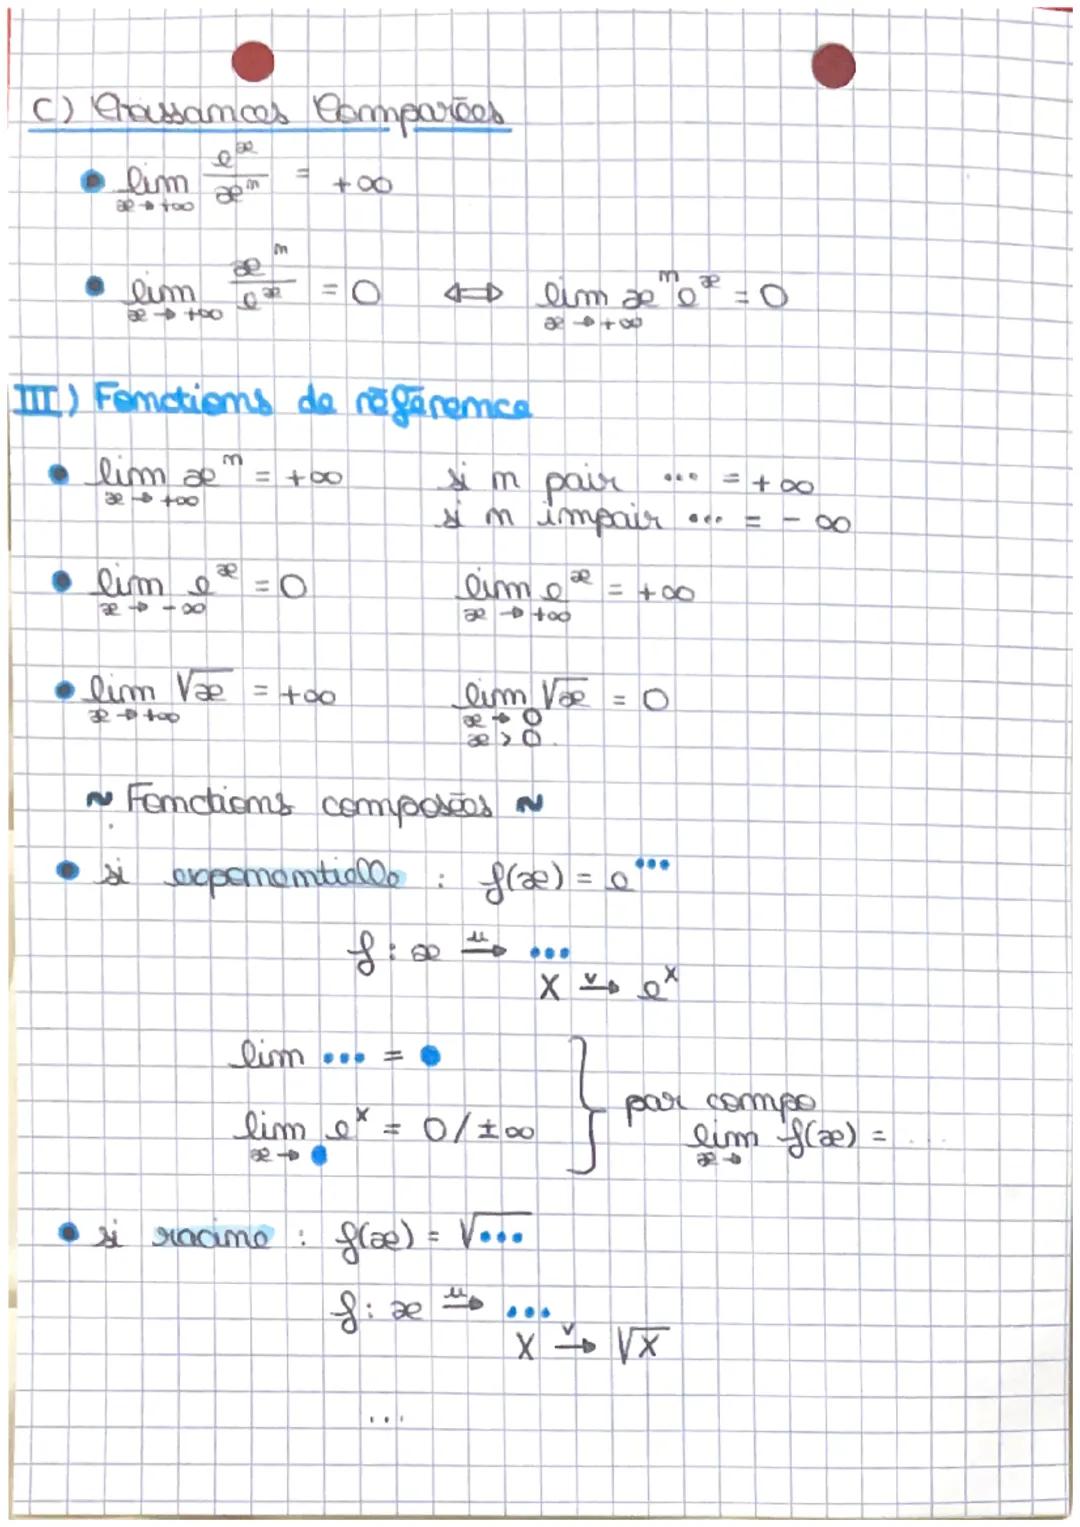 C) Croissances Comparées
• lim e^x / x^n = +∞
x → +∞
• lim x^n / e^x = 0 ⟺ lim x^n e^x = 0
x → +∞ x → +∞
III) Fonctions de référence
• lim x^n = +∞ si n pair ... = +∞
x → +∞ si n impair ... = - ∞
• lim e^x = 0 lim e^x = +∞
x → -∞ x → +∞
• lim √x = +∞ lim √x = 0
x → +∞ x → 0
x > 0
~ Fonctions composées ~
• si exponentielle : f(x) = e^...
f : x →u ...
X →v e^X
lim ... = •
lim e^x = 0/±∞ } par compo
x → • lim f(x) = ...
x →
• si racine : f(x) = √...
f : x →u ...
X →v √X
...